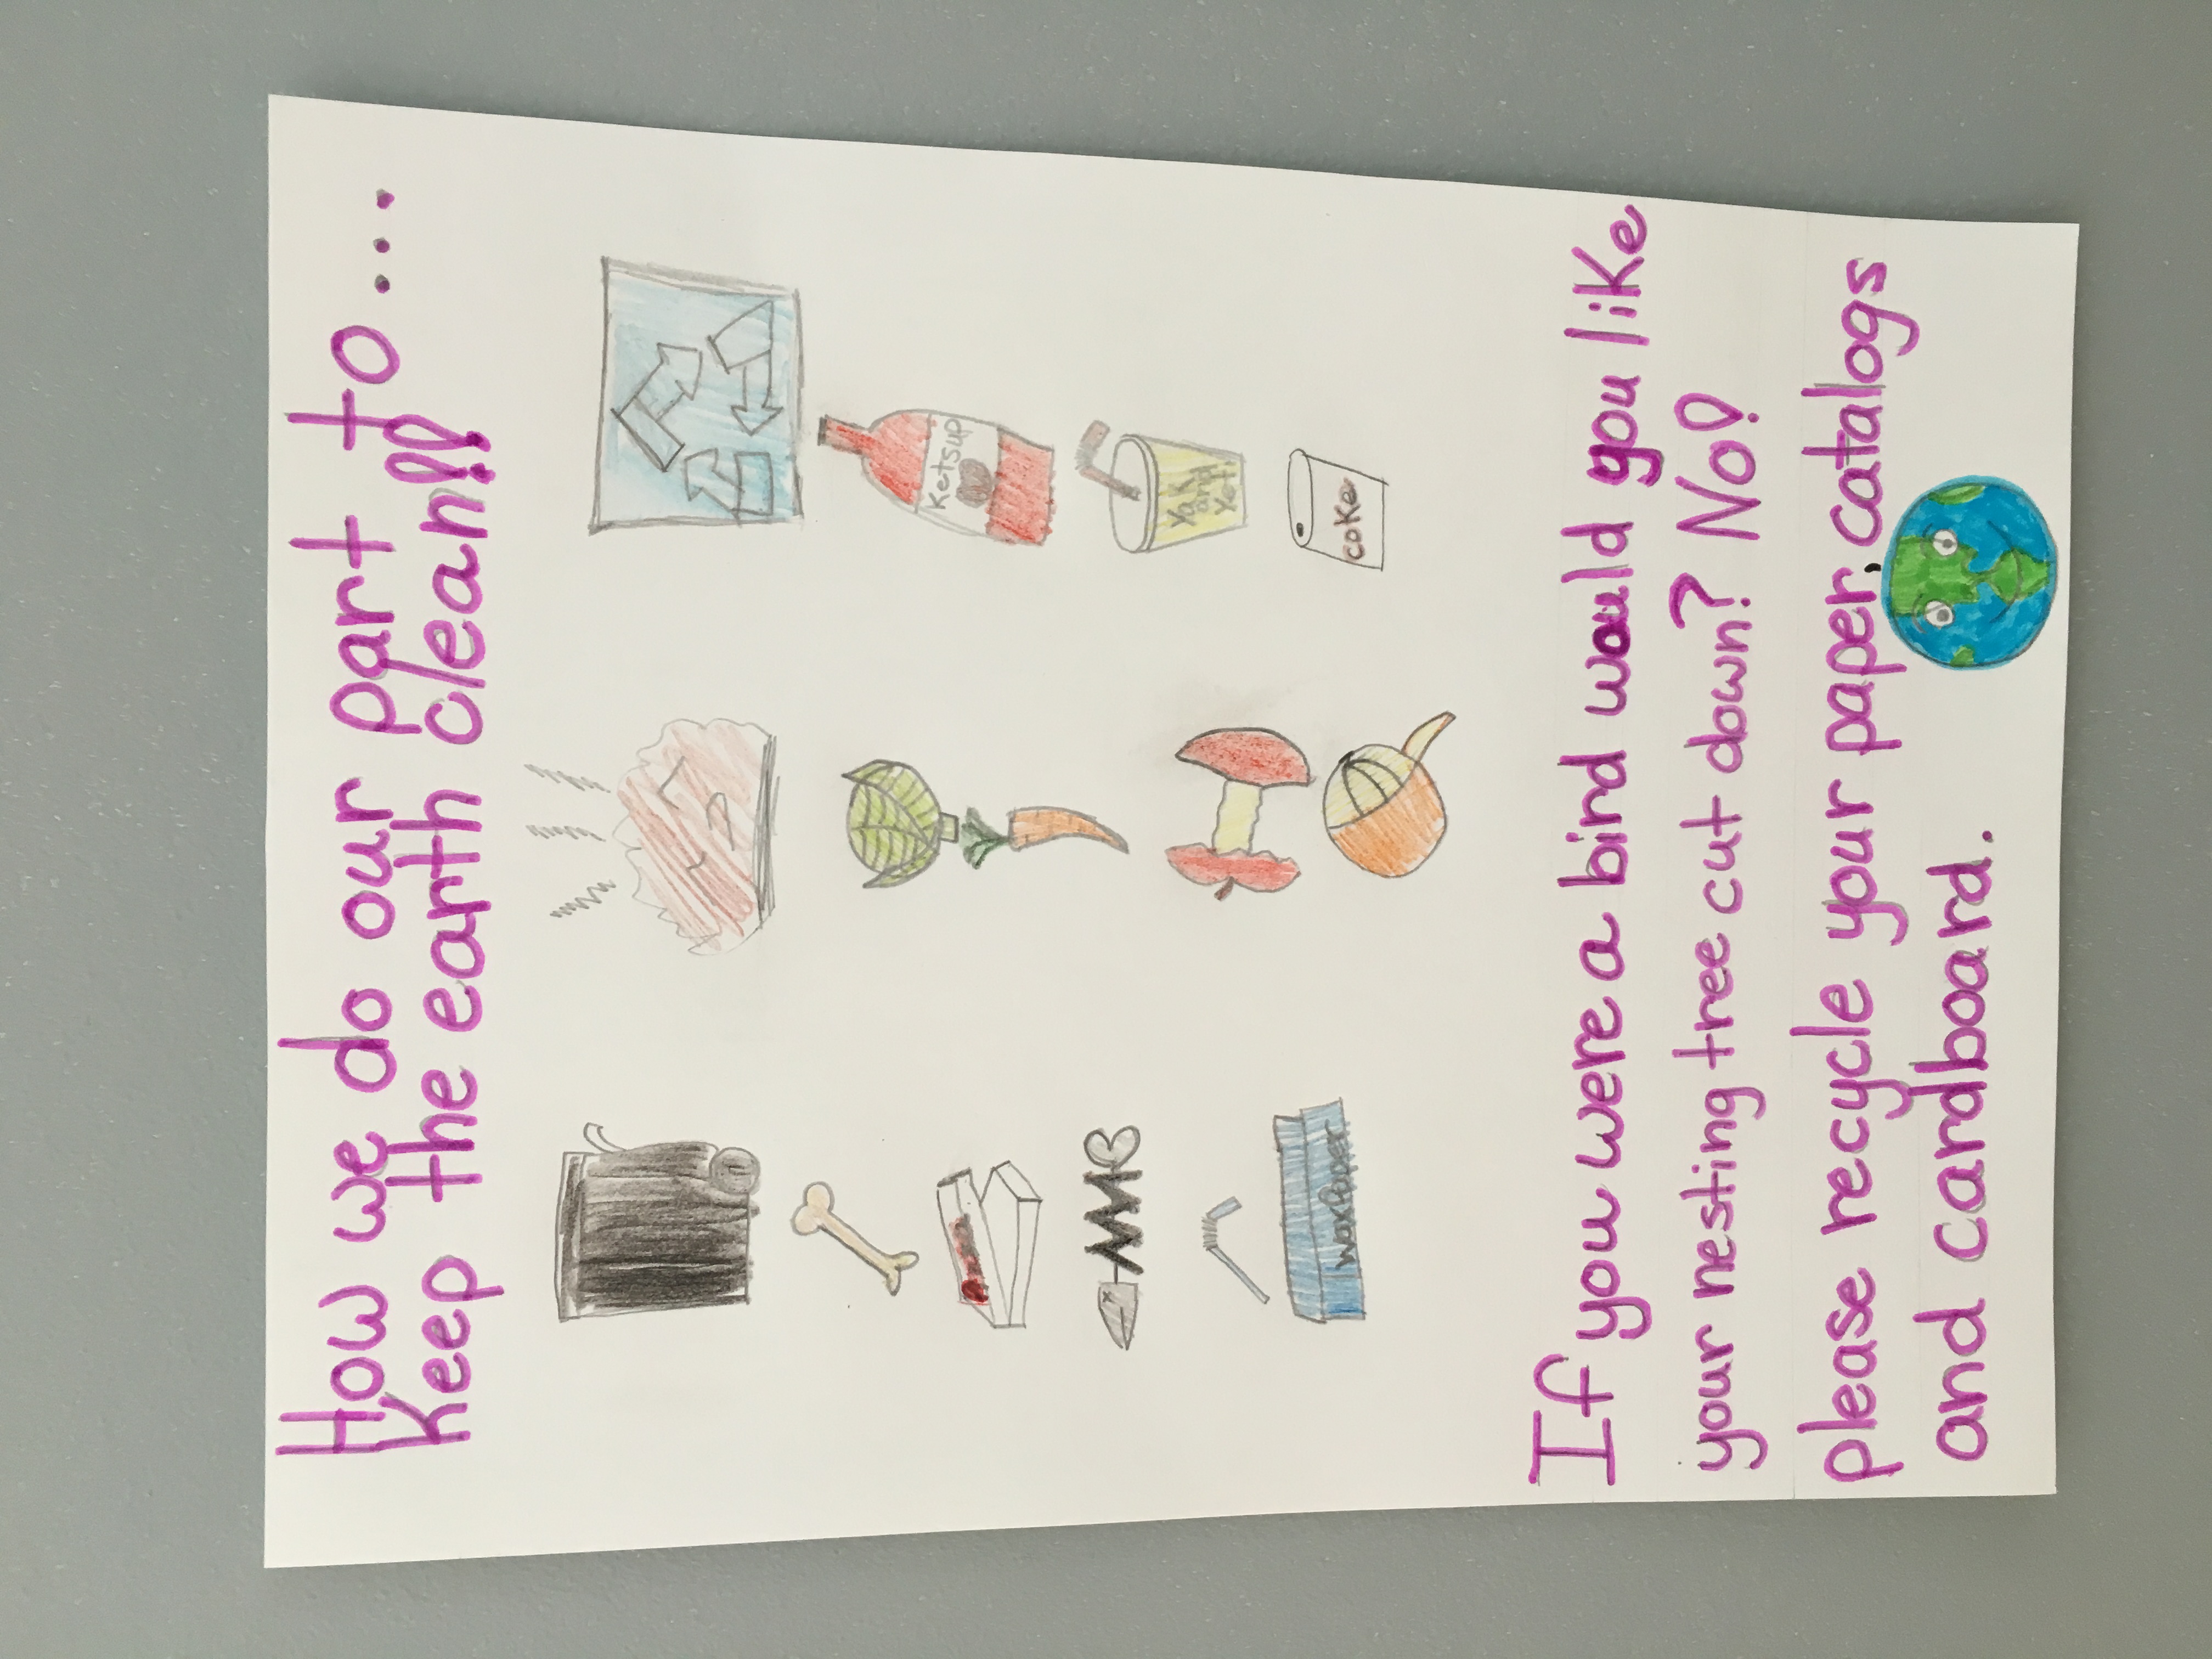 How we do our part to...
Keep the earth clean!!!
Ketsup
Yak
and
Yeti
coke
Wax Paper
If you were a bird would you like
your nesting tree cut down? No!
please recycle your paper, catalogs
and cardboard.